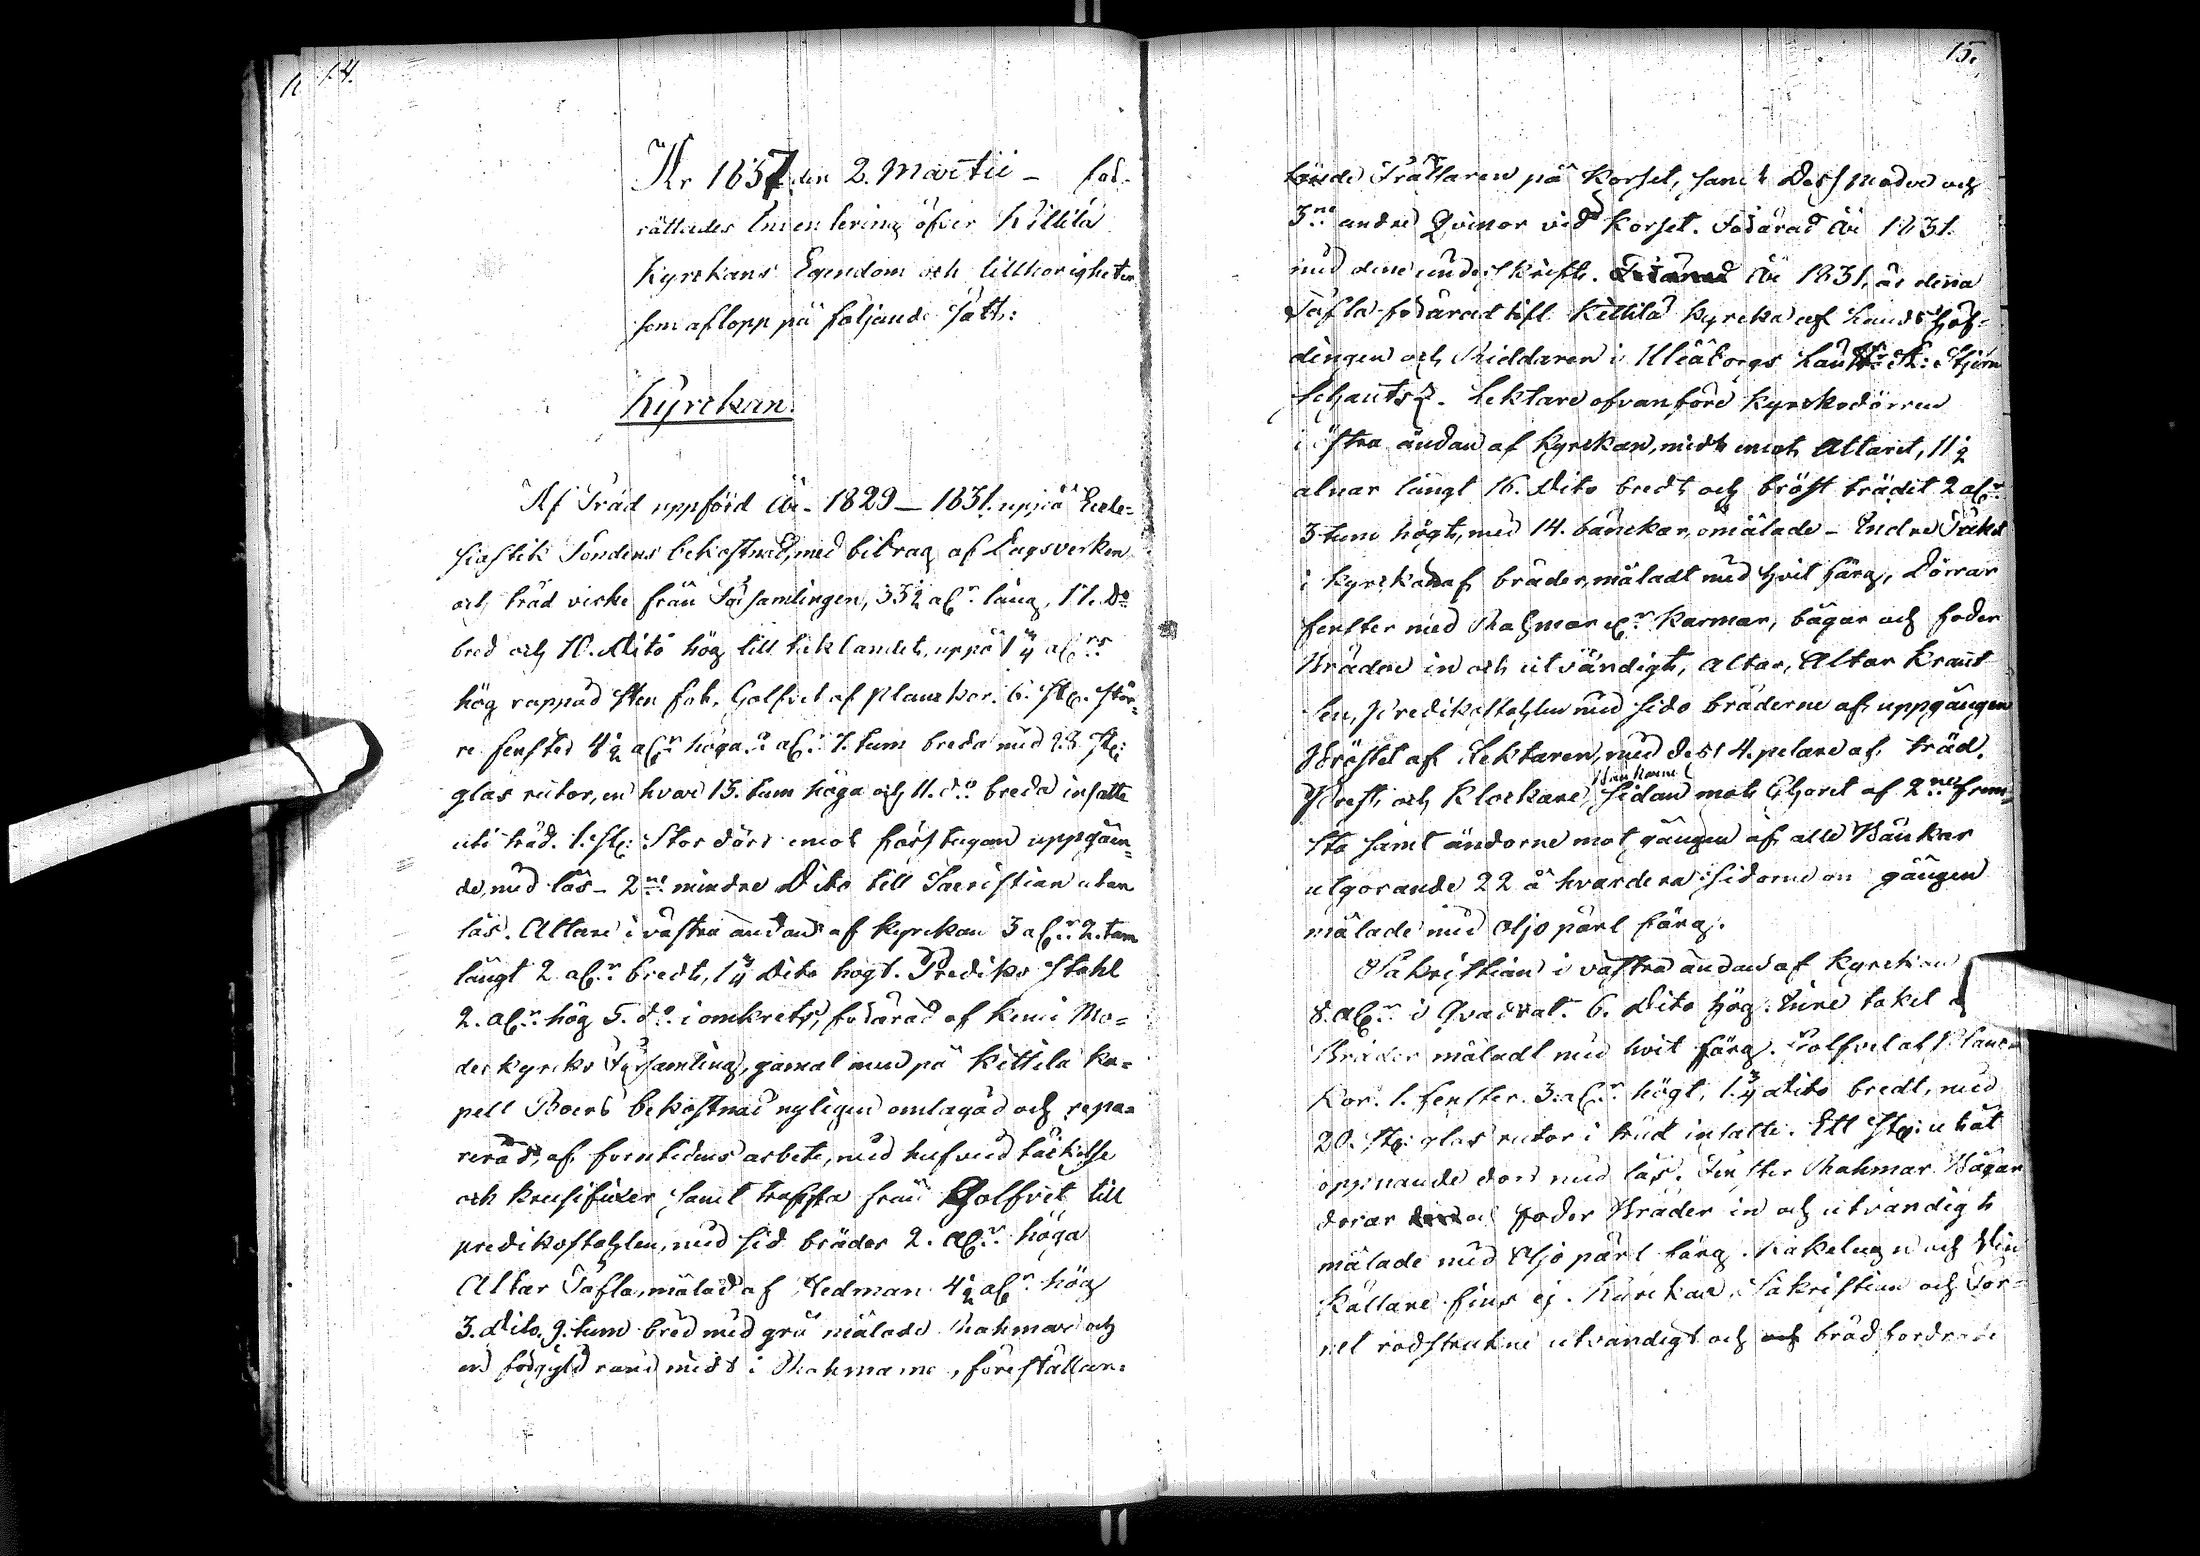 14.
År 1837 den 2. Martii – för-
rättades Inventering öfver Kittilä
Kyrckans Egendom och tillhörigheter
som aflopp på följande sätt:
Kyrckan.
Af Träd uppförd År 1829–1831. uppå Eccle=
siastik Fondens bekostnad, med bidrag af Dagsverken
och träd virke från Församlingen, 33½ aln:r lång, 17. D:o
bred och 10. Dito hög till taklandet, uppå 1¼ aln:rs
hög rappad sten fot. Golfvet af Planckor. 6. St: stör=
re fenster 4½ aln:r höga, 2 aln:r 7. tum breda med 28. St:
glas rutor, en hvar 15. tum höga och 11. d:o breda insatte
uti träd. 1. St: Stor dörr emot förstugan uppgåen=
de, med lås – 2:ne mindre Dito till Sacristian utan
lås. Altare i västra ändan af Kyrckan 3 aln:r 2. tum
långt 2 aln:r bredt, 1¼ Dito högt. Prediko Stohl
2. aln:r hög 5. d:o i omkrets, förärad af Kemi Mo=
der kyrko Församling, gamal men på Kittilä Ka=
pell Boers bekostnad nyligen omlagad och repa=
rerad, af forntidens arbete, med hufvud täckelse
och krusifixer samt trappa från Golfvet till
predikostohlen, med sid bräder 2. aln:r höga
Altar Tafla, målad af Hedman 4½ aln:r hög
3. Dito. 9. tum bred med grå målade Rahmar och
en förgyld rand midt i Rahmarne, föreställan=
15.
dande Frälsaren på Korset, samt Dess Moder och
3:ne andre Qvinor vid Korset. Förärad År 1831.
med denne underskrift. År 1831, är denna
Tafla förärad till Kittilä Kyrcka af Landshöf=
dingen och Riddaren i Uleåborgs Län R: Stjern
schantz. Lektare ofvanföre Kyrckodörren
i östra ändan af Kyrckan, midt emot Altaret, 11½
alnar långt 16. Dito bredt och bröst trädet 2 aln:r
3 tum högt, med 14. bänckar, omålade – Indre Taket
i Kyrckan af bräder, måladt med hvit färg, Dörrar
fenster med Rahmar Karmar, bågar och foder
Bräden in och utvändigt, Altar, Altar Krant
sen, Predikostohlen med sido bräderne af uppgången
Bröstet af Lektaren, med dess 4. pelare af träd.
Prest, och Klockare Bänkarne, sidan mot Choret af 2:ne främ=
sta samt ändorne mot gången af alle Bänkar
utgörande 22 å hvardera sidorne om gången
målade med oljo pärl färg.
Sakristian i västra ändan af Kyrckan
8. aln:r i Qvadrat. 6. Dito hög. Inre taket a
Bräder måladt med hvit färg. Golfvet af Planc
kor. 1. fenster. 3. aln:r högt, 1.¾ Dito bredt, med
20. St: glas rutor i träd insatte. Ett St: utåt
öppnande dörr med lås. Fenster Rahmar Bågar
dörar och foder Bräder in och utvändigt
målade med Oljo pärl färg. Kakelugn och Vin
Källare fins ej. Kyrckan, Sakristian och Tor=
net rödstrukne utvändigt och och brädfordrade